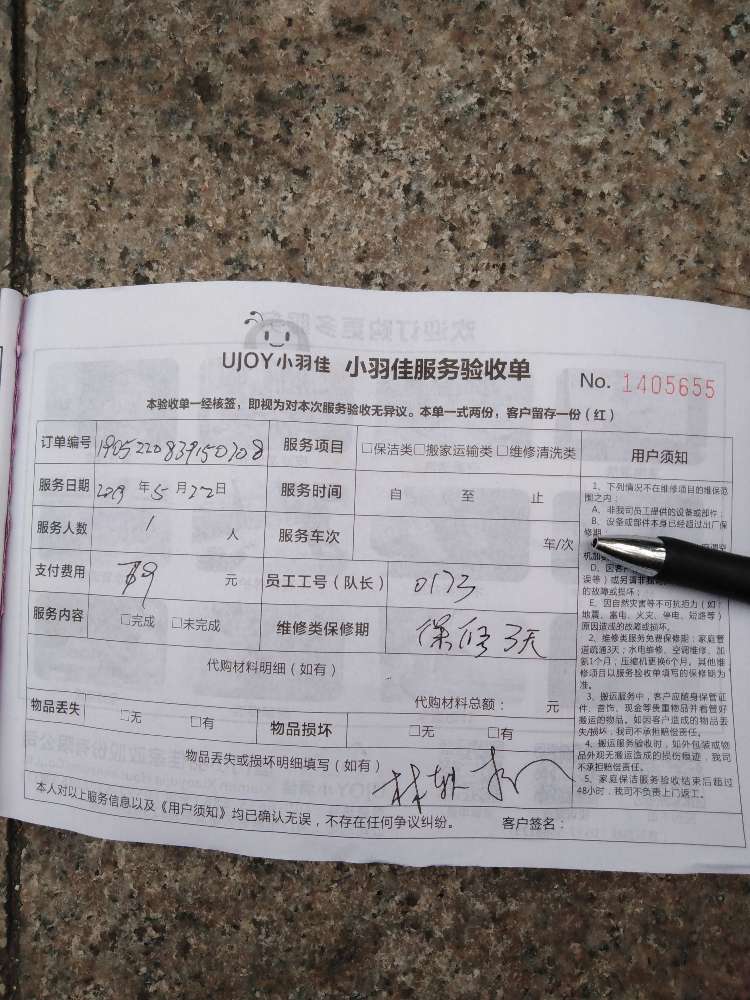 UJOY小羽佳 小羽佳服务验收单 No. 1405655
本验收单一经核签，即视为对本次服务验收无异议。本单一式两份，客户留存一份（红）
订单编号 1905220839150308 服务项目 □保洁类□搬家运输类 □维修清洗类 用户须知
服务日期 2019 年 5 月 22 日 服务时间 自 至 止
服务人数 1 人 服务车次 车/次
支付费用 元 员工工号（队长） 0173
服务内容 □完成 □未完成 维修类保修期 保修3天
代购材料明细（如有）
代购材料总额： 元
物品丢失 □无 □有 物品损坏 □无 □有
物品丢失或损坏明细填写（如有）
本人对以上服务信息以及《用户须知》均已确认无误，不存在任何争议纠纷。 客户签名：
1、下列情况不在维修项目的维保范
围之内：
A、非我司员工提供的设备或部件；
B、设备或部件本身已经超过出厂保
修期
D、因客
误等）或另请非我
的故障或损坏；
E、因自然灾害等不可抗拒力（如：
地震、雷电、火灾、停电、短路等）
原因造成的故障或损坏。
2、维修类服务免费保修期：家庭管
道疏通3天；水电维修、空调维修、加
氟1个月；压缩机更换6个月。其他维
修项目以服务验收单填写的保修期为
准。
3、搬运服务中，客户应随身保管证
件、首饰、现金等贵重物品并看管好
搬运的物品。如因客户造成的物品丢
失/损坏，我司不承担赔偿责任。
4、搬运服务验收时，如外包装或物
品外观无搬运造成的损伤痕迹，我司
不承担赔偿责任。
5、家庭保洁服务验收结束后超过
48小时，我司不负责上门返工。